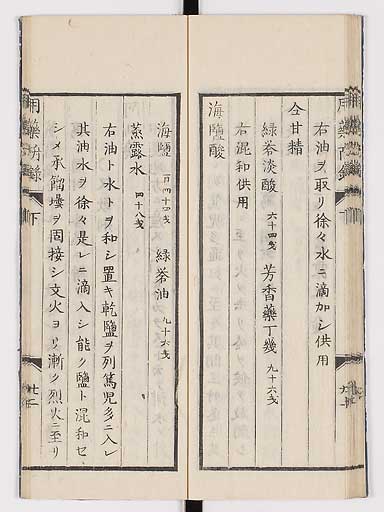 右油ヲ取リ徐々水ニ滴加シ供用
仝甘精
緑礬淡酸 六十四戔 芳香薬丁幾 九十六戔
右混和供用
海鹽酸
海鹽 百四十四戔 緑礬油 九十六戔
蒸露水 四十八戔
右油ト水トヲ和シ置キ乾鹽ヲ列篤児多ニ入レ
其油水ヲ徐々是レニ滴入シ能ク鹽ト混和セ
シメ承餾壜ヲ固接シ文火ヨリ漸ク烈火ニ至リ
用藥
録 下
廿二